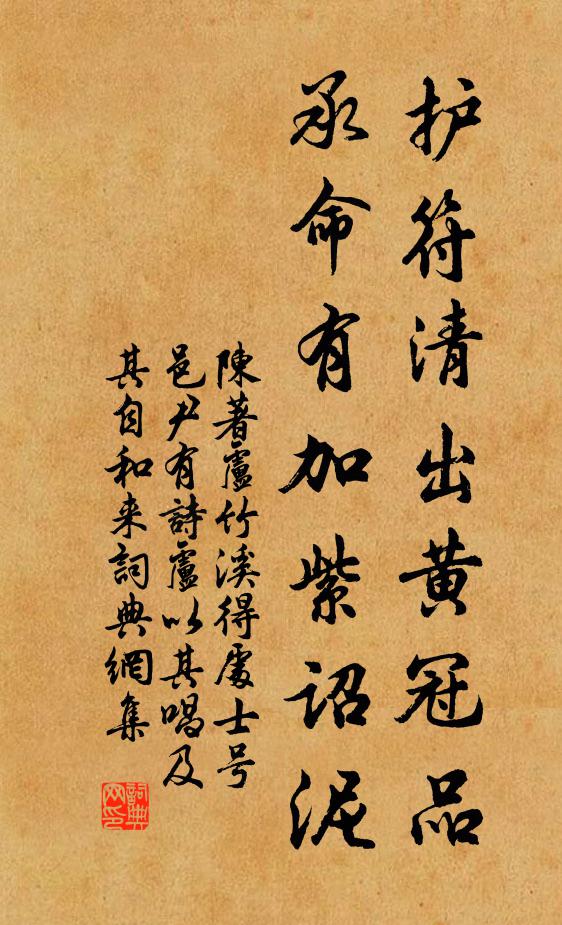 护符清出黄冠品
承命有加紫诏泥
陳著盧竹溪得處士号
邑尹有詩盧以其唱及
其自和来詞典網集
詞典网印